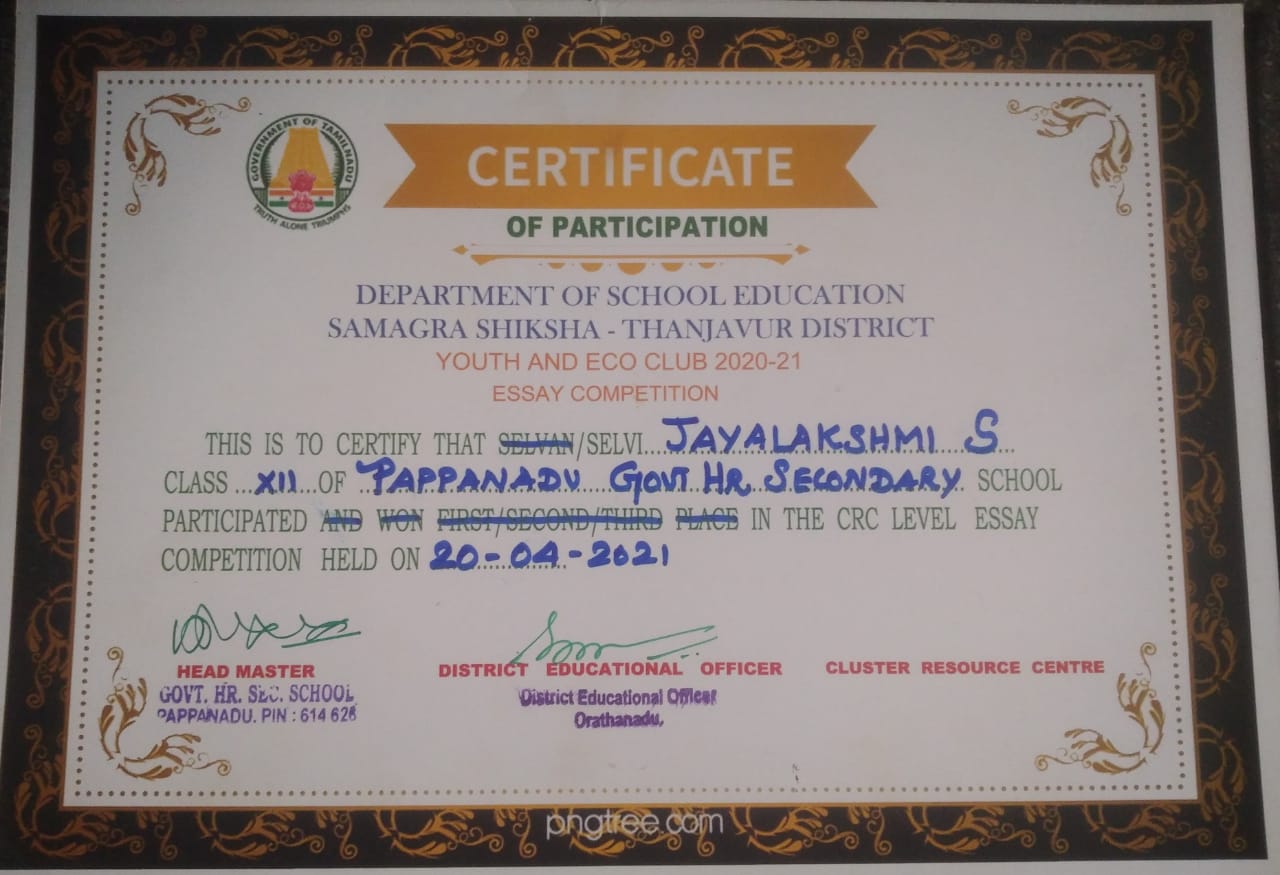 GOVERNMENT OF TAMILNADU
TRUTH ALONE TRIUMPHS
CERTIFICATE
OF PARTICIPATION
DEPARTMENT OF SCHOOL EDUCATION
SAMAGRA SHIKSHA - THANJAVUR DISTRICT
YOUTH AND ECO CLUB 2020-21
ESSAY COMPETITION
THIS IS TO CERTIFY THAT SELVAN/SELVI...JAYALAKSHMI S...
CLASS ...XII...OF PAPPANADU GOVT HR SECONDARY SCHOOL
PARTICIPATED AND WON FIRST/SECOND/THIRD PLACE IN THE CRC LEVEL ESSAY
COMPETITION HELD ON 20-04-2021
HEAD MASTER DISTRICT EDUCATIONAL OFFICER CLUSTER RESOURCE CENTRE
GOVT. HR. SEC. SCHOOL District Educational Officer
PAPPANADU. PIN : 614 626 Orathanadu,
pngtree.com